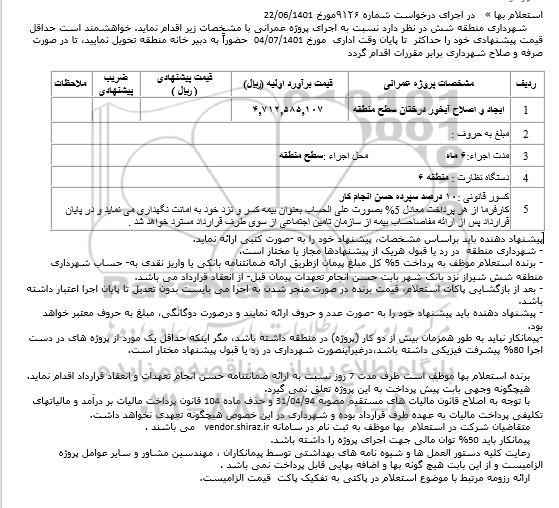 استعلام بها » در اجرای درخواست شماره ۹۱۲۶مورخ 22/06/1401
شهرداری منطقه شش در نظر دارد نسبت به اجرای پروژه عمرانی با مشخصات زیر اقدام نماید. خواهشمند است حداقل
قیمت پیشنهادی خود را حداکثر تا پایان وقت اداری مورخ 04/07/1401 حضوراً به دبیر خانه منطقه تحویل نمایید، تا در صورت
صرفه و صلاح شهرداری برابر مقررات اقدام گردد
ردیف مشخصات پروژه عمرانی قیمت برآورد اولیه (ریال) قیمت پیشنهادی (ریال) ضریب پیشنهادی ملاحظات
1 ایجاد و اصلاح آبخور درختان سطح منطقه ۴,۷۱۲,۵۸۵,۱۰۷
2 مبلغ به حروف :
3 مدت اجراء:۶ ماه محل اجراء :سطح منطقه
4 دستگاه نظارت : منطقه ۶
5 کسور قانونی :۱۰ درصد سپرده حسن انجام کار
کارفرما از هر پرداخت معادل 5% بصورت علی الحساب بعنوان بیمه کسر و نزد خود به امانت نگهداری می نماید و در پایان
قرارداد پس از ارائه مفاصاحساب بیمه از سازمان تامین اجتماعی از سوی طرف قرارداد مسترد خواهد شد .
پیشنهاد دهنده باید براساس مشخصات، پیشنهاد خود را به -صورت کتبی ارائه نماید.
- شهرداری منطقه در رد یا قبول هریک از پیشنهادها مجاز یا مختار است.
- برنده استعلام موظف به پرداخت 5% کل مبلغ پیمان ازطریق ارائه ضمانتنامه بانکی یا واریز نقدی به- حساب شهرداری
منطقه شش شیراز نزد بانک شهر بابت حسن انجام تعهدات پیمان قبل- از انعقاد قرارداد می باشد.
- بعد از بازگشایی پاکات استعلام، قیمت برنده در صورت منجر شدن به اجرا می بایست بدون تعدیل تا پایان اجرا اعتبار داشته
باشد.
- پیشنهاد دهنده باید پیشنهاد خود را به -صورت عدد و حروف ارائه نمایند و درصورت دوگانگی، مبلغ به حروف معتبر خواهد
بود.
-پیمانکار نباید به طور همزمان بیش از دو کار (پروژه) در منطقه داشته باشد، مگر اینکه حداقل یک مورد از پروژه های در دست
اجرا 80% پیشرفت فیزیکی داشته باشد،درغیراینصورت شهرداری در رد یا قبول پیشنهاد مختار است.
برنده استعلام بها موظف است ظرف مدت 7 روز نسبت به ارائه ضمانتنامه حسن انجام تعهدات و انعقاد قرارداد اقدام نماید.
هیچگونه وجهی بابت پیش پرداخت به این پروژه تعلق نمی گیرد.
با توجه به اصلاح قانون مالیات های مستقیم مصوبه 31/04/94 و حذف ماده 104 قانون پرداخت مالیات بر درآمد و مالیاتهای
تکلیفی پرداخت مالیات به عهده طرف قرارداد بوده و شهرداری در این خصوص هیچگونه تعهدی نخواهد داشت.
متقاضیان شرکت در استعلام بها موظف به ثبت نام در سامانه vendor.shiraz.ir می باشند .
پیمانکار باید 50% توان مالی جهت اجرای پروژه را داشته باشد.
رعایت کلیه دستور العمل ها و شیوه نامه های بهداشتی توسط پیمانکاران ، مهندسین مشاور و سایر عوامل پروژه
الزامیست و از این بابت هیچ گونه بها و اضافه بهایی قابل پرداخت نمی باشد .
ارائه رزومه مرتبط با موضوع استعلام در پاکتی به تفکیک پاکت قیمت الزامیست.